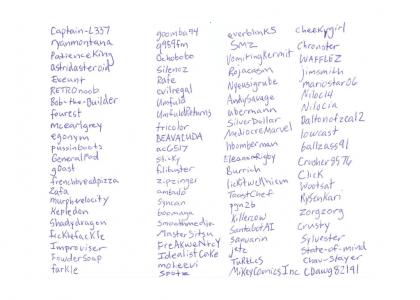 Captain-L337
ryanmontana
PatienceKing
Astridasteroid
Eveunt
RETROnoob
Bob-the-Builder
fourest
mcearlgrey
egonym
pussinboots
GeneralMod
g0ast
frenchbreadpizza
Zafa
murphvelocity
Kepleden
Shadydragon
ficklefackle
Improviser
PowderSoap
farkle
goomba94
g959fm
Ochobobo
Silenoz
Rafe
evilregal
Unfuld
UnfuldReturns
tricolor
BEAVALUDA
ac6517
sticky
filibuster
zipzinger
ambulo
Syncan
boomaya
Smoothmedia
MasterSitsu
FreAkweNtcY
IdealistCoke
moheevi
Spotz
everblink5
Smz
VomitingPermit
Rojacasm
Nyeusigrube
AndySavage
ubermann
SilverDollar
MediocreMarvel
hbomberman
EleanorRigby
Burrich
ToastChef
pgn2b
Killercow
SantabotAI
Sanvarin
jetz
TuRtLCs
MiKeyComicsInc
cheekygirl
Chronster
WAFFLEZ
jimsmith
mariostar06
Niloc14
Nilocia
Daltonotzcal2
lowcast
ballzass91
Crasher9576
Click
Wootsat
RySenkari
zorgzorg
Crusty
Sylvester
State-of-mind
Chav-Slayer
CDawg82191